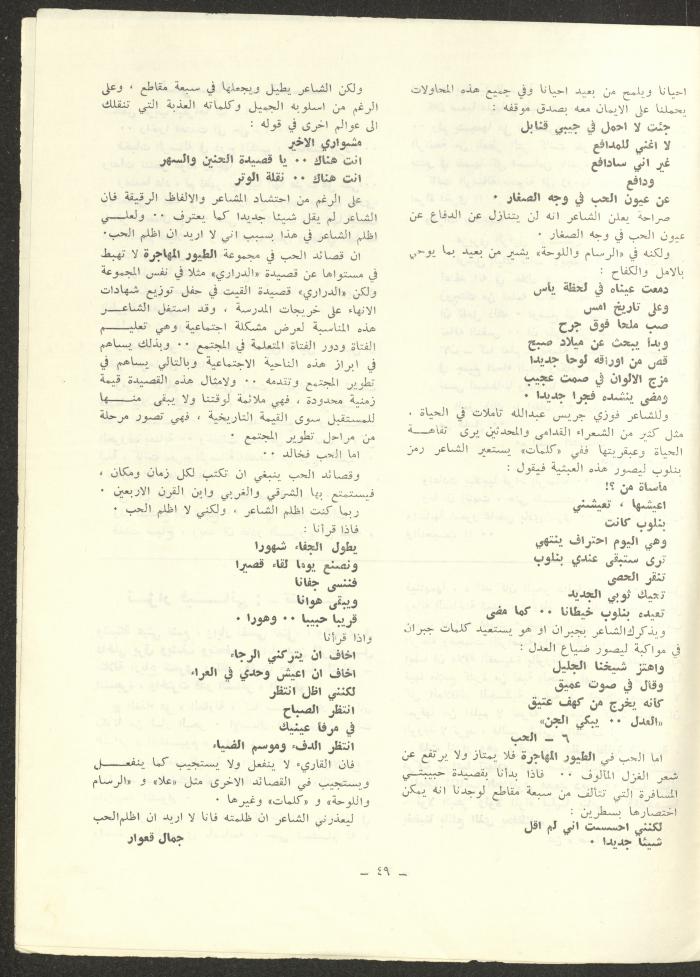 احيانا ويلمح من بعيد احيانا وفي جميع هذه المحاولات
يحملنا على الايمان معه بصدق موقفه :
جئت لا احمل في جيبي قنابل
لا اغني للمدافع
غير اني سادافع
ودافع
عن عيون الحب في وجه الصغار ٠
صراحة يعلن الشاعر انه لن يتنازل عن الدفاع عن
عيون الحب في وجه الصغار ٠
ولكنه في «الرسام واللوحة» يشير من بعيد بما يوحي
بالامل والكفاح :
دمعت عيناه في لحظة يأس
وعلى تاريخ امس
صب ملحا فوق جرح
وبدأ يبحث عن ميلاد صبح
قص من اوراقه لوحا جديدا
مزج الالوان في صمت عجيب
ومضى ينشده فجرا جديدا ٠
وللشاعر فوزي جريس عبدالله تاملات في الحياة ٠
مثل كثير من الشعراء القدامى والمحدثين يرى تفاهـــة
الحياة وعبقريتها ففي «كلمات» يستعير الشاعر رمز
بنلوب ليصور هذه العبثية فيقول :
مأساة من ؟!
اعيشها ، تعيشني
بنلوب كانت
وهي اليوم احتراف ينتهي
ترى ستبقى عندي بنلوب
تنقر الحصى
تحيك ثوبي الجديد
تعيده بنلوب خيطانا ٠٠ كما مضى
ويذكرك الشاعر بجبران او هو يستعيد كلمات جبران
في مواكبه ليصور ضياع العدل :
واهتز شيخنا الجليل
وقال في صوت عميق
كأنه يخرج من كهف عتيق
«العدل ٠٠ يبكي الجن»
٦ ــ الحب
اما الحب في الطيور المهاجرة فلا يمتاز ولا يرتفع عن
شعر الغزل المألوف ٠٠ فاذا بدأنا بقصيدة حبيبتــي
المسافرة التي تتألف من سبعة مقاطع لوجدنا انه يمكن
اختصارها بسطرين :
لكنني احسست اني لم اقل
شيئا جديدا ٠
ولكن الشاعر يطيل ويجعلها في سبعة مقاطع ، وعلى
الرغم من اسلوبه الجميل وكلماته العذبة التي تنقلك
الى عوالم اخرى في قوله :
مشواري الاخير
انت هناك ٠٠ يا قصيدة الحنين والسهر
انت هناك ٠٠ نقلة الوتر
على الرغم من احتشاد المشاعر والالفاظ الرقيقة فان
الشاعر لم يقل شيئا جديدا كما يعترف ٠٠ ولعلـــي
اظلم الشاعر في هذا بسبب اني لا اريد ان اظلم الحب.
ان قصائد الحب في مجموعة الطيور المهاجرة لا تهبط
في مستواها عن قصيدة «الدراري» مثلا في نفس المجموعة
ولكن «الدراري» قصيدة القيت في حفل توزيع شهادات
الانهاء على خريجات المدرسة ، وقد استغل الشاعــر
هذه المناسبة لعرض مشكلة اجتماعية وهي تعليــــم
الفتاة ودور الفتاة المتعلمة في المجتمع ٠٠ وبذلك يساهم
في ابراز هذه الناحية الاجتماعية وبالتالي يساهم في
تطوير المجتمع وتقدمه ٠٠ ولامثال هذه القصيدة قيمة
زمنية محدودة ، فهي ملائمة لوقتنا ولا يبقى منـــها
للمستقبل سوى القيمة التاريخية ، فهي تصور مرحلة
من مراحل تطوير المجتمع ٠
اما الحب فخالد ٠٠
وقصائد الحب ينبغي ان تكتب لكل زمان ومكان ،
فيستمتع بها الشرقي والغربي وابن القرن الاربعين ٠
ربما كنت اظلم الشاعر ، ولكني لا اظلم الحب ٠
فاذا قرأنا :
يطول الجفاء شهورا
ونصنع يوما لقاء قصيرا
فننسى جفانا
ويبقى هوانا
قريبا حبيبا ٠٠ وهورا ٠
واذا قرأنا
اخاف ان يتركني الرجاء
اخاف ان اعيش وحدي في العراء
لكنني اظل انتظر
انتظر الصباح
في مرفأ عينيك
انتظر الدفء وموسم الضياء
فان القاريء لا ينفعل ولا يستجيب كما ينفعــــل
ويستجيب في القصائد الاخرى مثل «علا» و «الرسام
واللوحة» و «كلمات» وغيرها ٠
ليعذرني الشاعر ان ظلمته فانا لا اريد ان اظلم الحب
جمال قعوار
ــ ٤٩ ــ